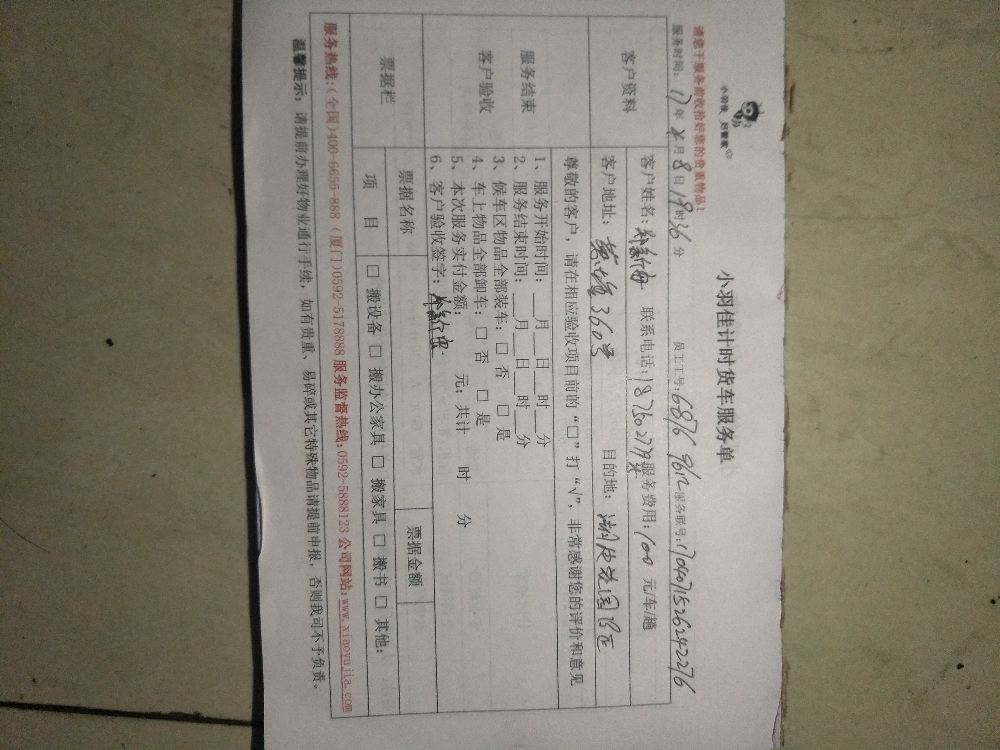 小羽佳 好管家
小羽佳计时货车服务单
请您于服务前收拾好您的贵重物品!
服务时间: 17年4月8日19时36分 员工工号:6876 9612 服务账号:1704071526242276
客户资料
客户姓名: 联系电话: 服务费用:100 元/车/趟
客户地址: 360号 目的地: 花园
尊敬的客户,请在相应验收项目前的“□”打“√”,非常感谢您的评价和意见
服务结束
客户验收
1、服务开始时间:__月__日__时__分
2、服务结束时间:__月__日__时__分
3、候车区物品全部装车:□ 否 □ 是
4、车上物品全部卸车:□ 否 □ 是
5、本次服务实付金额: 元;共计 时 分
6、客户验收签字:
票据栏 票据名称 票据金额
项 目 □ 搬设备 □ 搬办公家具 □ 搬家具 □ 搬书 □ 其他:
服务热线:(全国)400-6655-888 (厦门)0592-5178888 服务监督热线:0592-5888123 公司网站:www.xiaoyujia.com
温馨提示:请提前办理好物业通行手续,如有贵重、易碎或其它特殊物品请提前申报,否则我司不予负责。